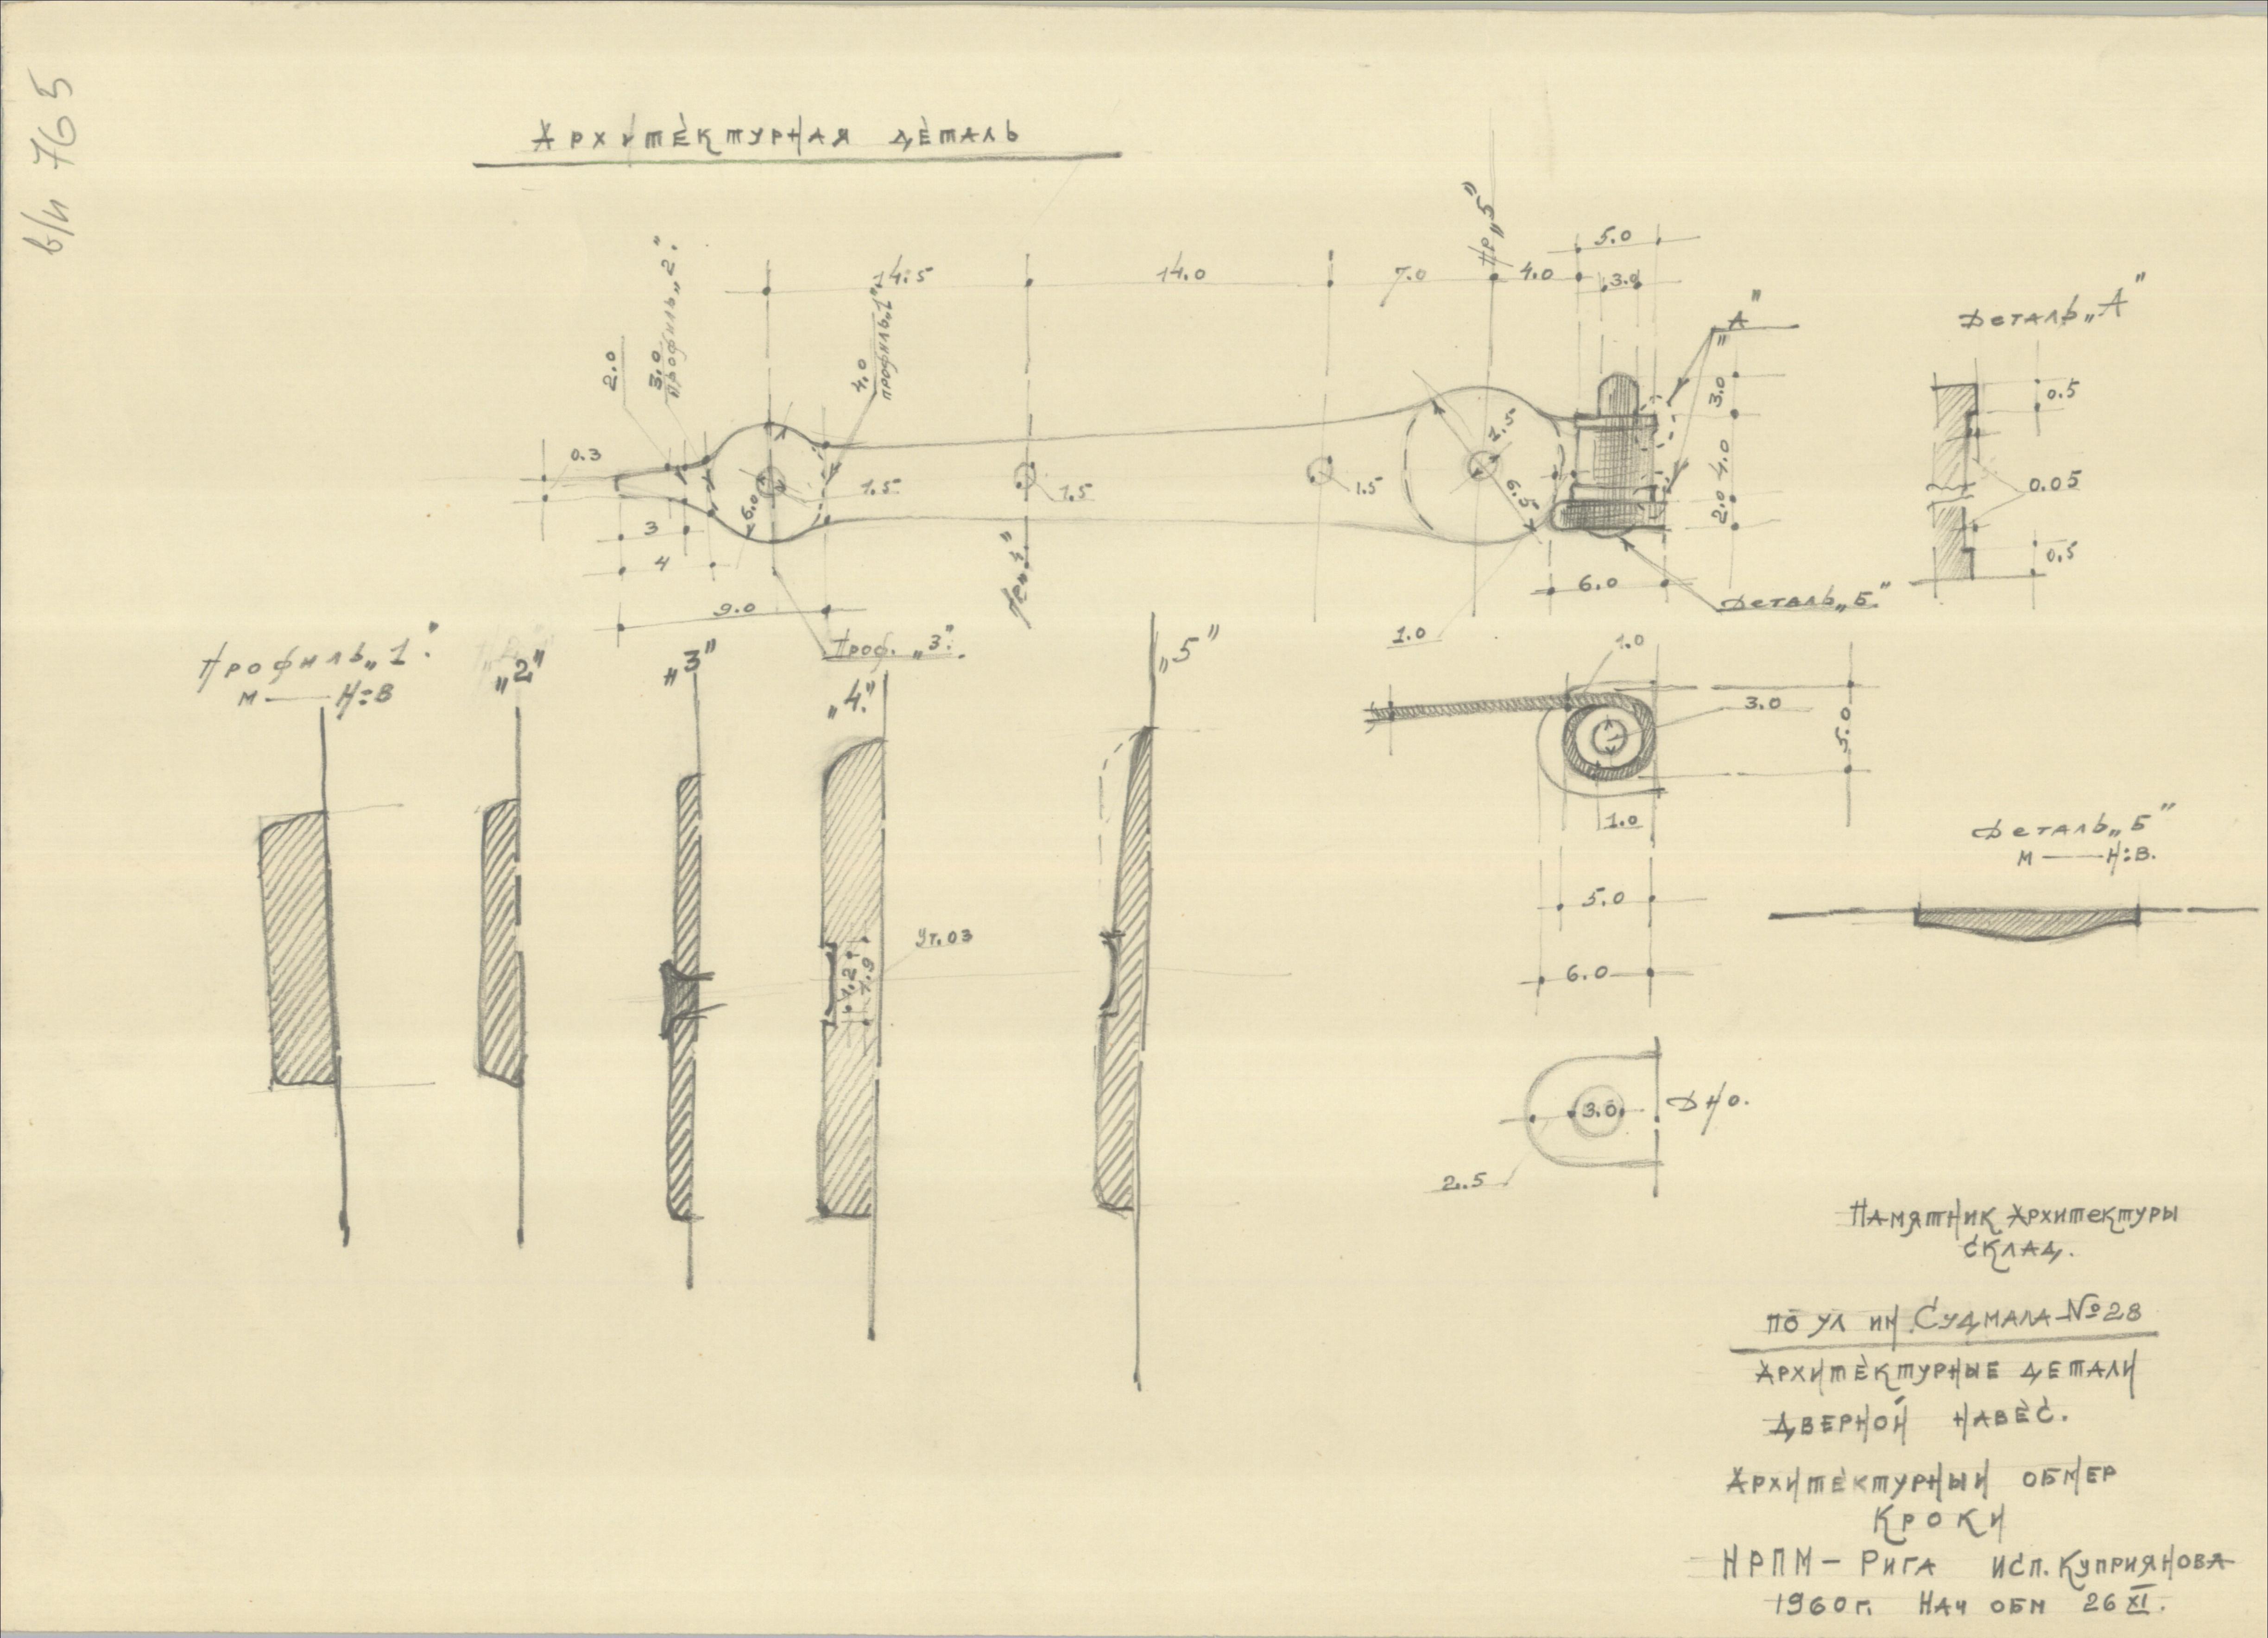 в/и 765
Архитектурная деталь
Пр „5”
5.0
14.5
14.0
7.0
4.0
3.0
2.0
3.0
профиль „2”.
4.0
профиль „1”
„А”
Деталь „А”
0.5
0.05
0.5
3.0
4.0
2.0
0.3
6.0
1.5
1.5
1.5
6.5
3
4
9.0
6.0
1.0
Деталь „Б”
Проф. „3”.
Профиль „1”.
М — Н:В
„2”
„3”
„4”
„5”
1.2
1.9
Ут. 03
1.0
3.0
5.0
1.0
5.0
6.0
Деталь „Б”
М — Н:В.
3.0
Дно.
2.5
Памятник Архитектуры
склад.
по ул им. Судмала-№28
Архитектурные детали
дверной навес.
Архитектурный обмер
Кроки
НРПМ – Рига исп. Куприянова
1960 г. Нач обм 26 XI.